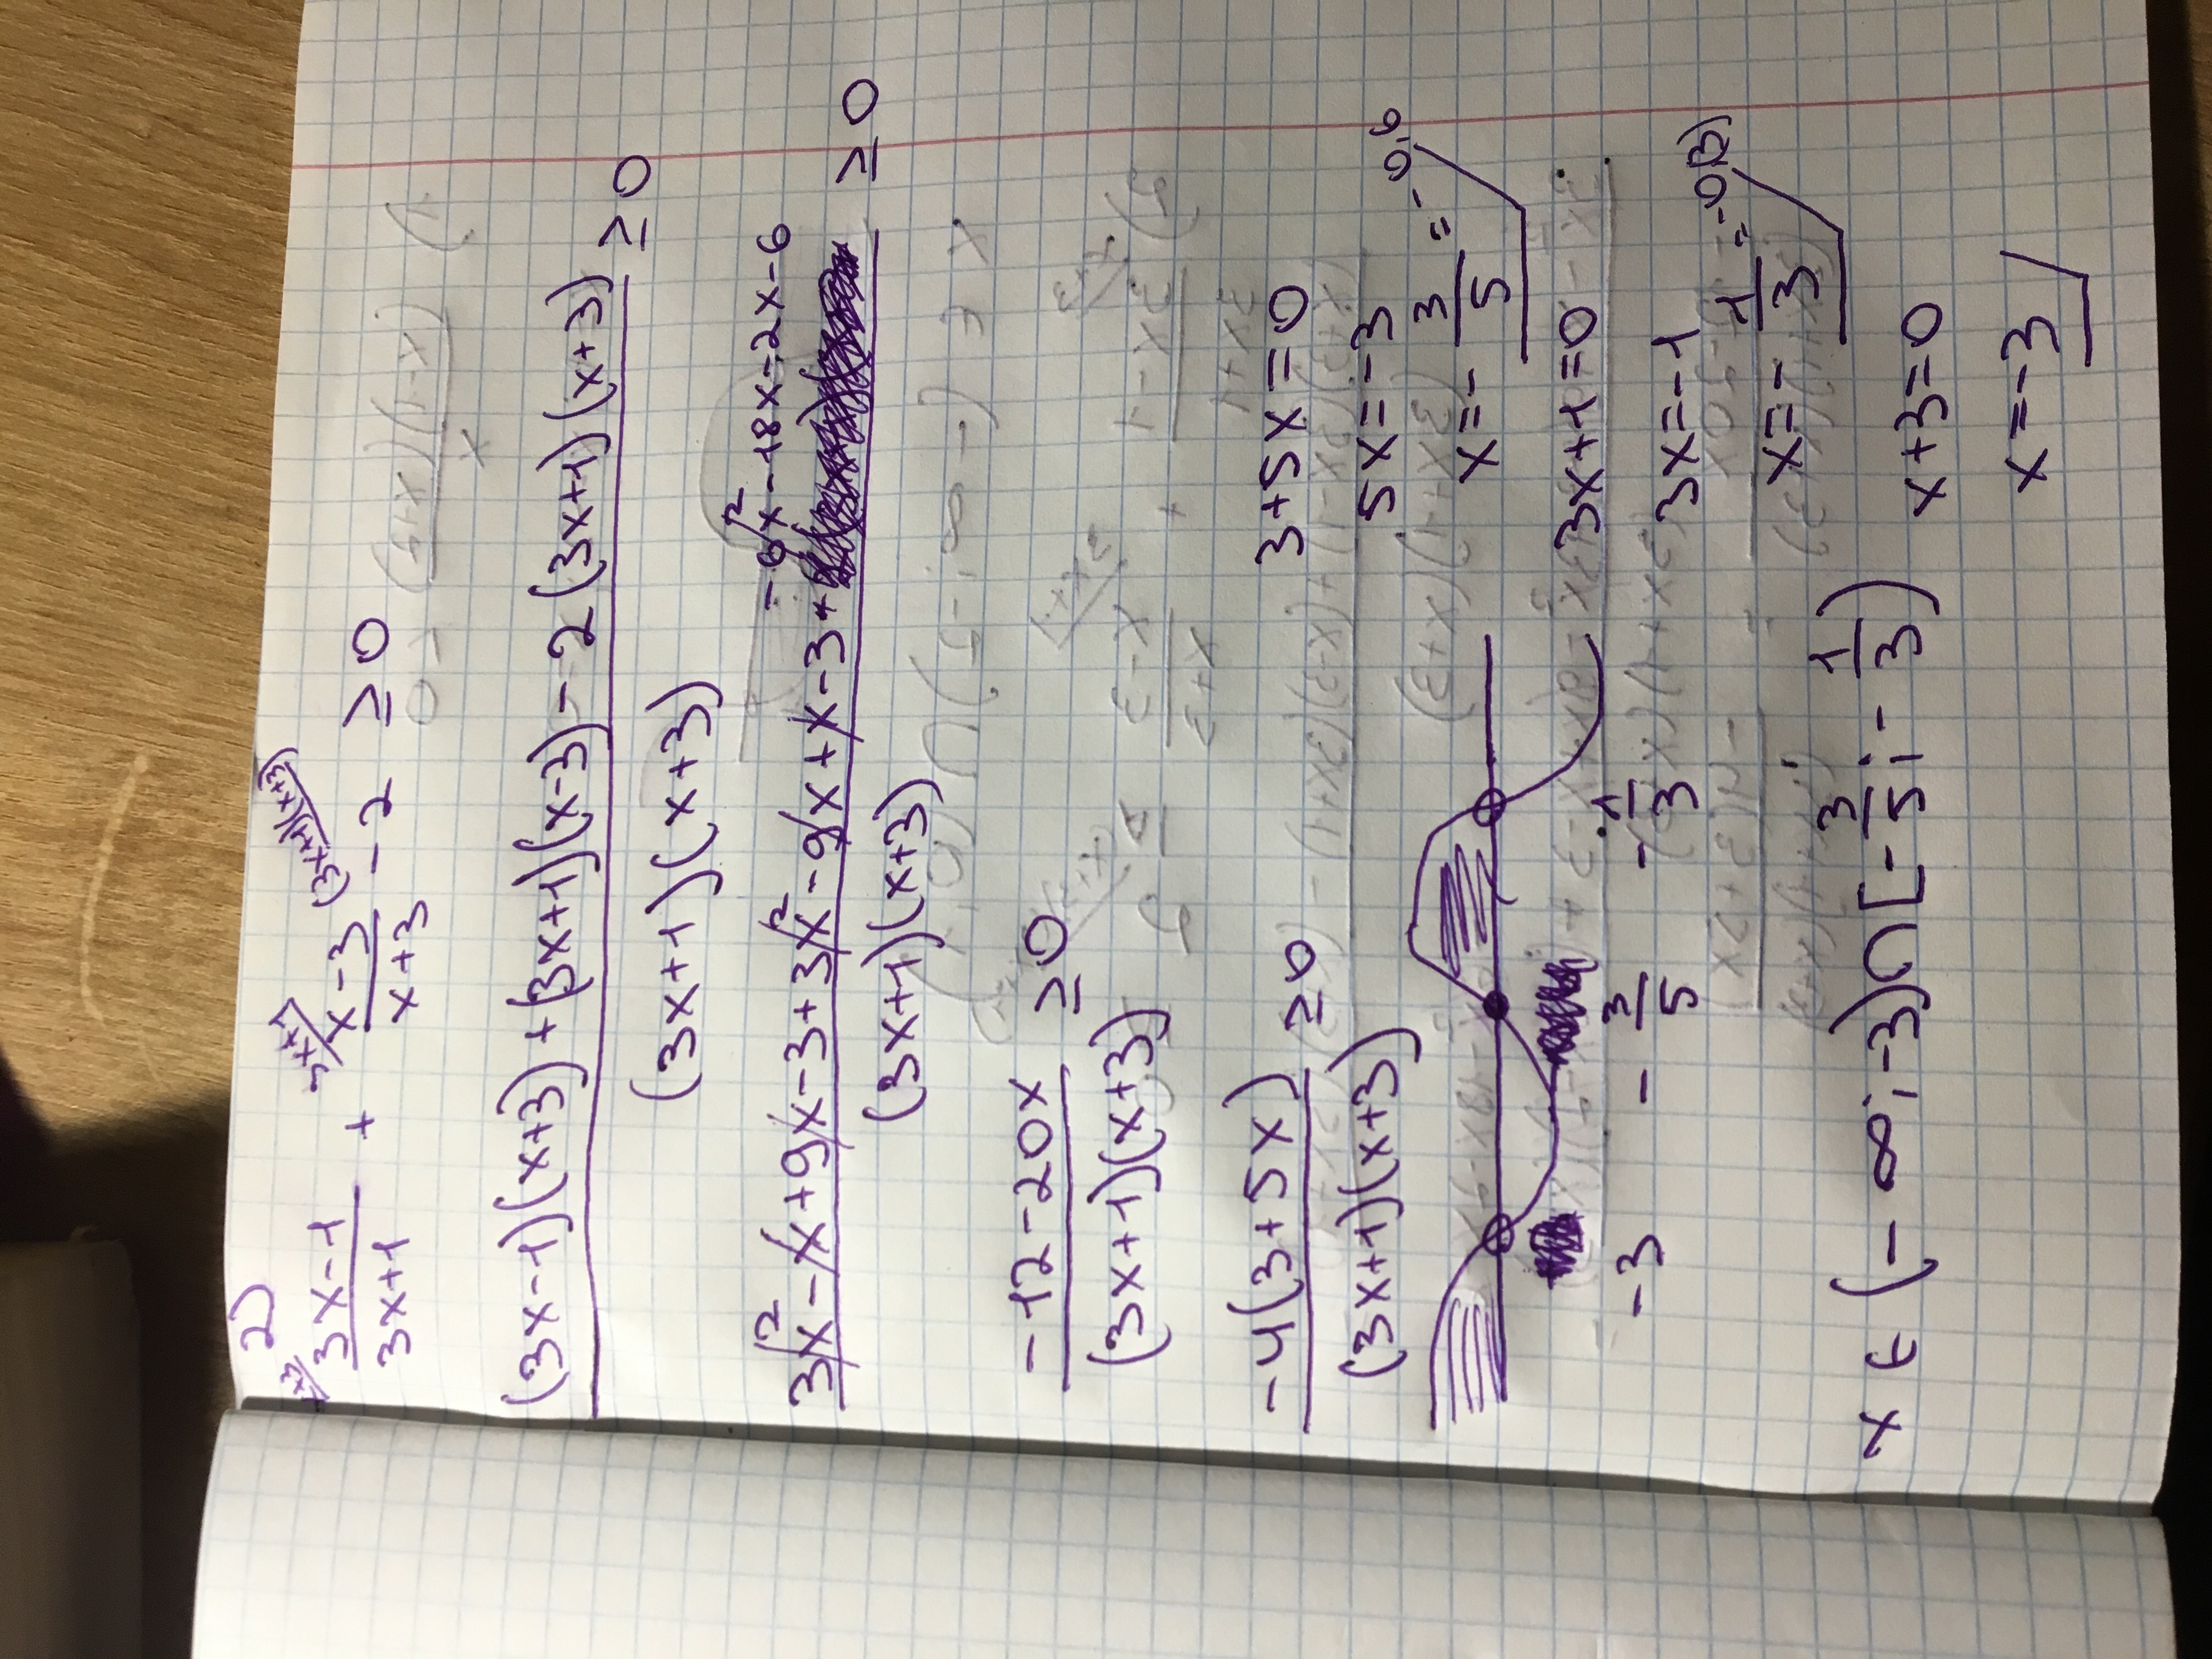 2)
(3x-1)/(3x+1) + (x-3)/(x+3) - 2 ≥ 0
((3x-1)(x+3)+(3x+1)(x-3)-2(3x+1)(x+3))/((3x+1)(x+3)) ≥ 0
(3x²-x+9x-3+3x²-9x+x-3-6x²-18x-2x-6)/((3x+1)(x+3)) ≥ 0
(-12-20x)/((3x+1)(x+3)) ≥ 0
(-4(3+5x))/((3x+1)(x+3)) ≥ 0
-3 -3/5 -1/3
x ∈ (-∞;-3)∩[-3/5;-1/3)
3+5x=0
5x=-3
x=-3/5=-0,6
3x+1=0
3x=-1
x=-1/3=-0,(3)
x+3=0
x=-3